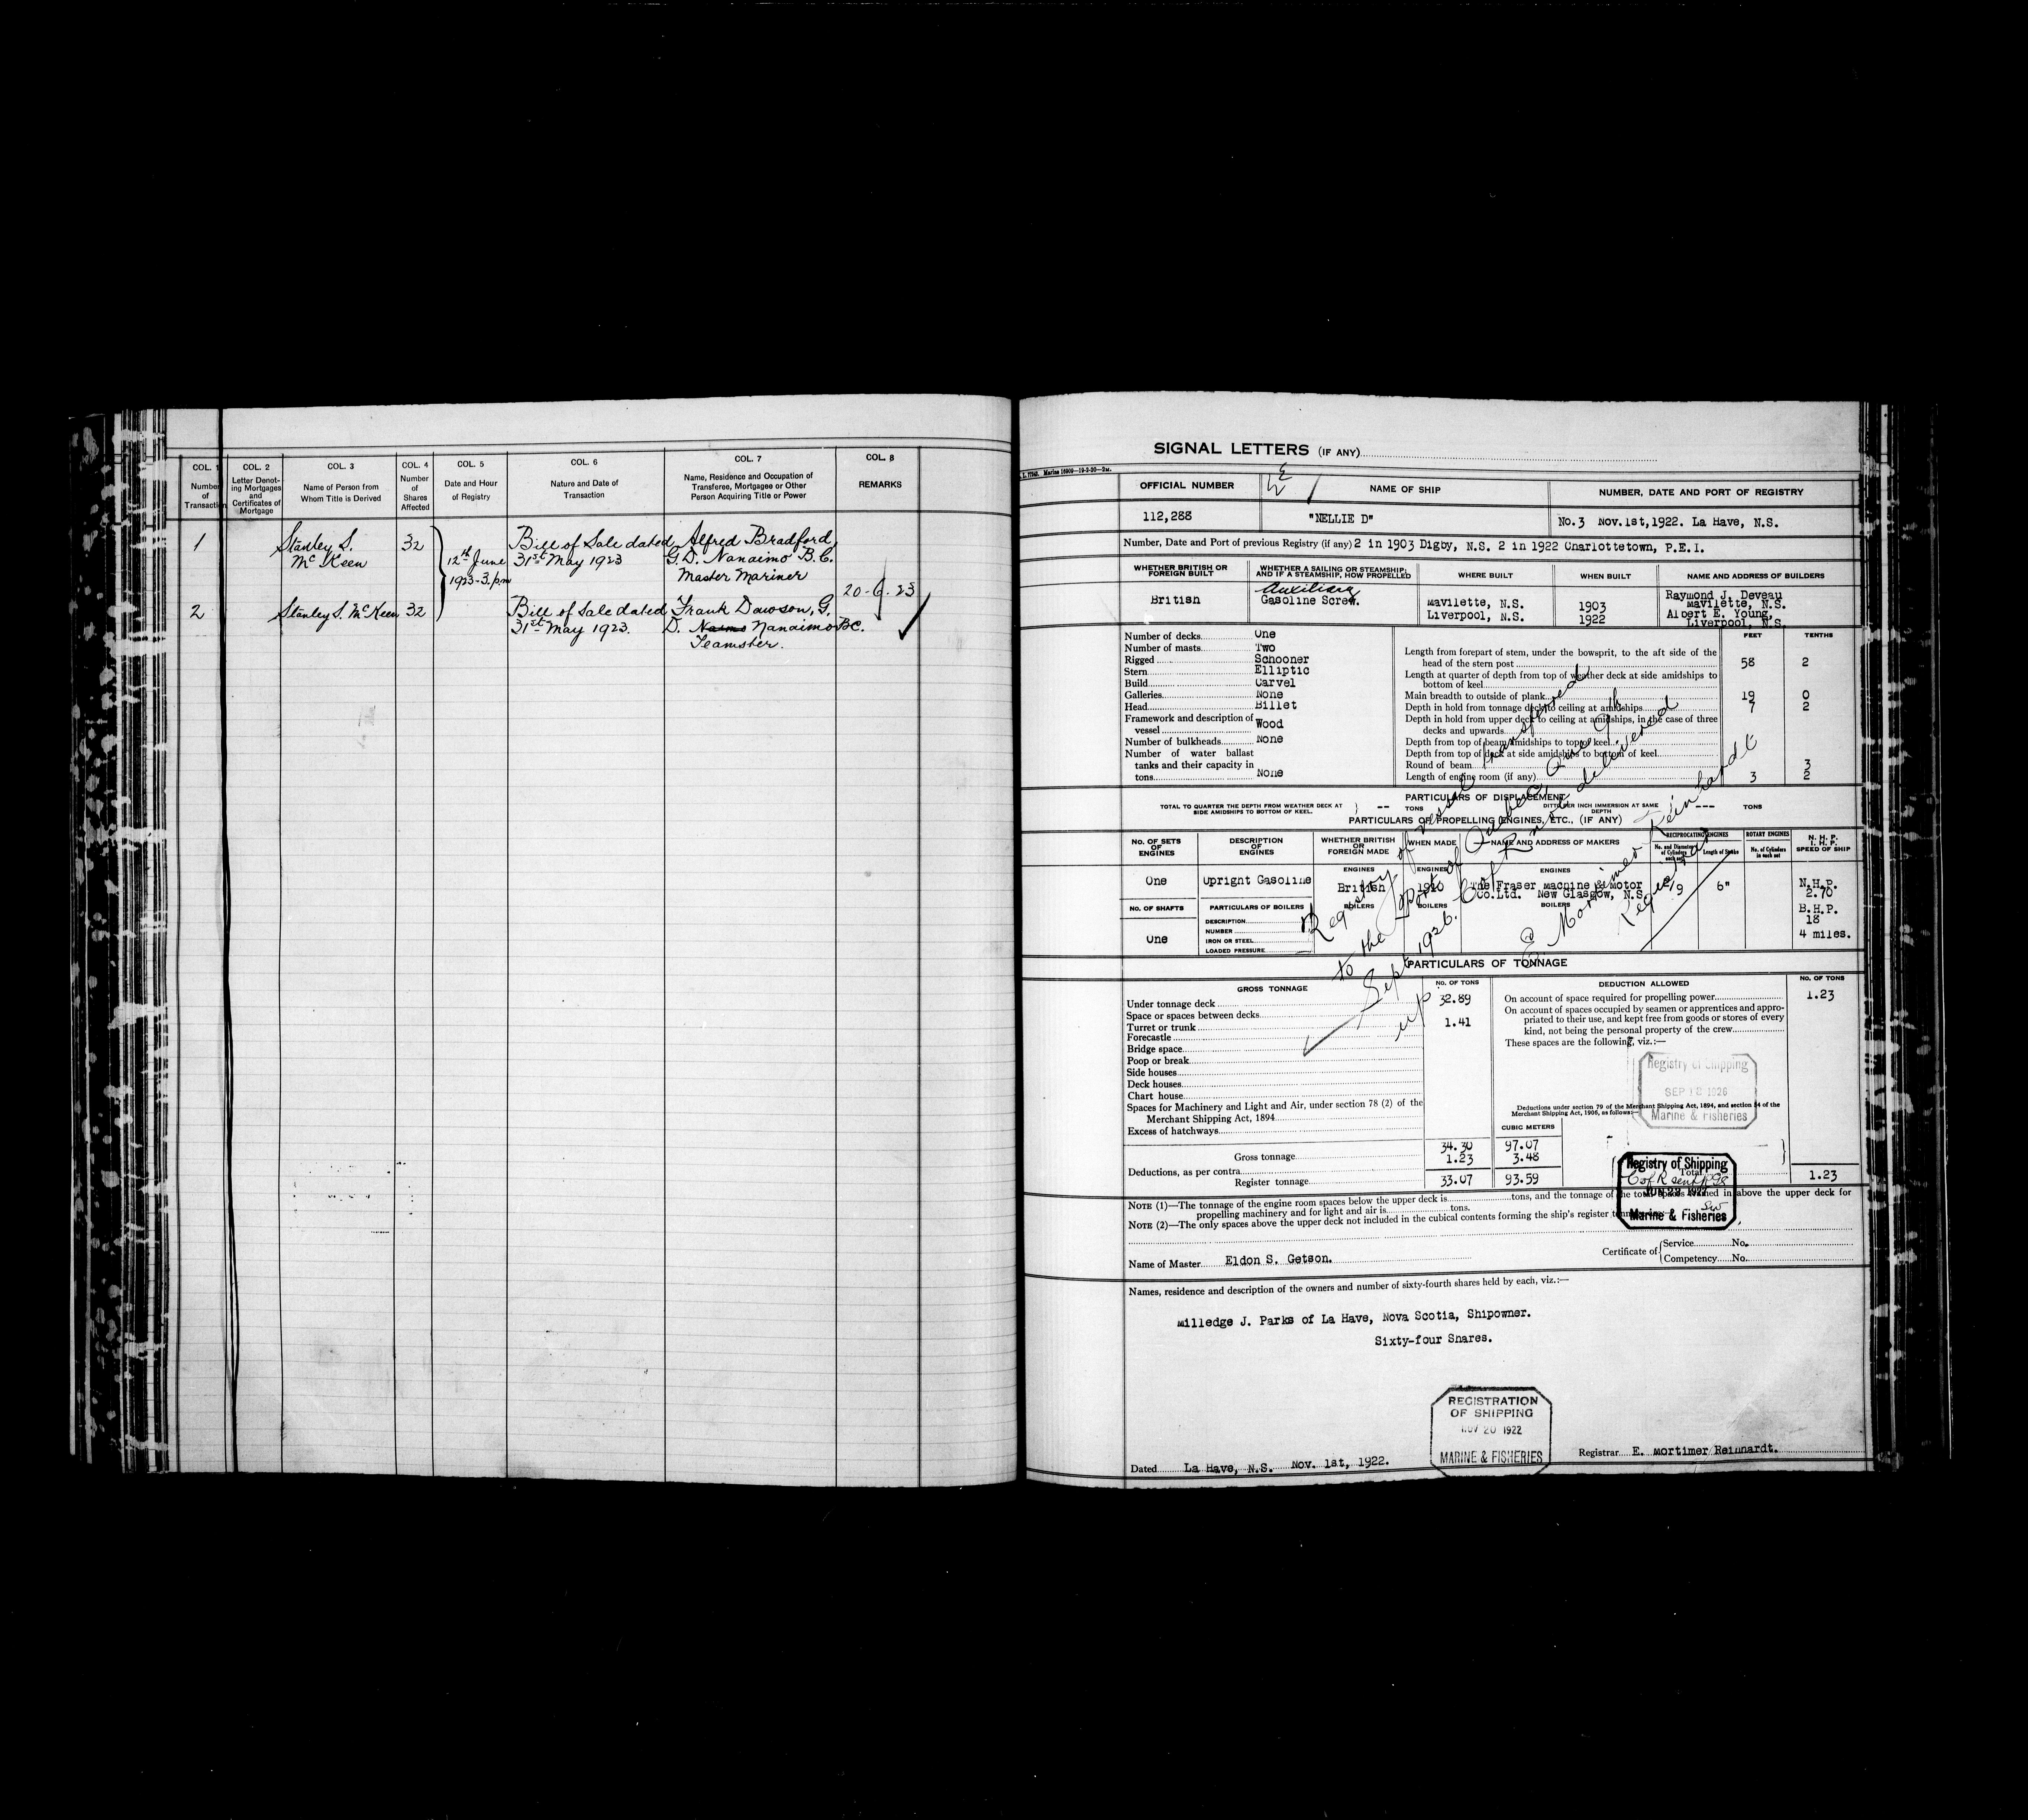 COL. 1
Number
of
Transaction
COL. 2
Letter Denot-
ing Mortgages
and
Certificates of
Mortgage
COL. 3
Name of Person from
Whom Title is Derived
COL. 4
Number
of
Shares
Affected
COL. 5
Date and Hour
of Registry
COL. 6
Nature and Date of
Transaction
COL. 7
Name, Residence and Occupation of
Transferee, Mortgagee or Other
Person Acquiring Title or Power
COL. 8
REMARKS
1
Stanley S.
McKeen
32
12th June
1923-3.p.m
Bill of Sale dated
31st May 1923
Alfred Bradford,
G.D. Nanaimo B.C.
Master Mariner
20-6-23
2
Stanley S. McKeen
32
Bill of Sale dated
31st May 1923.
Frank Dawson, G.
D. Nanaimo B.C.
Teamster.
SIGNAL LETTERS (IF ANY)
Marine 16909—19-2-20—2M.
OFFICIAL NUMBER
NAME OF SHIP
NUMBER, DATE AND PORT OF REGISTRY
112,288
"NELLIE D"
No.3 Nov.1st,1922. La Have, N.S.
Number, Date and Port of previous Registry (if any) 2 in 1903 Digby, N.S. 2 in 1922 Charlottetown, P.E.I.
WHETHER BRITISH OR
FOREIGN BUILT
WHETHER A SAILING OR STEAMSHIP;
AND IF A STEAMSHIP, HOW PROPELLED
WHERE BUILT
WHEN BUILT
NAME AND ADDRESS OF BUILDERS
British
Auxiliary
Gasoline Screw.
Mavilette, N.S.
Liverpool, N.S.
1903
1922
Raymond J. Deveau
Mavilette, N.S.
Albert E. Young,
Liverpool, N.S.
Number of decks One
Number of masts Two
Rigged Schooner
Stern Elliptic
Build Carvel
Galleries None
Head Billet
Framework and description of
vessel Wood
Number of bulkheads None
Number of water ballast
tanks and their capacity in
tons None
FEET TENTHS
Length from forepart of stem, under the bowsprit, to the aft side of the
head of the stern post 58 2
Length at quarter of depth from top of weather deck at side amidships to
bottom of keel
Main breadth to outside of plank 19 0
Depth in hold from tonnage deck to ceiling at amidships 7 2
Depth in hold from upper deck to ceiling at amidships, in the case of three
decks and upwards
Depth from top of beam amidships to top of keel
Depth from top of deck at side amidships to bottom of keel
Round of beam 3
Length of engine room (if any) 3 2
PARTICULARS OF DISPLACEMENT
TOTAL TO QUARTER THE DEPTH FROM WEATHER DECK AT
SIDE AMIDSHIPS TO BOTTOM OF KEEL.
-- TONS
DITTO PER INCH IMMERSION AT SAME
DEPTH
--- TONS
PARTICULARS OF PROPELLING ENGINES, ETC., (IF ANY)
NO. OF SETS
OF
ENGINES
DESCRIPTION
OF
ENGINES
WHETHER BRITISH
OR
FOREIGN MADE
WHEN MADE
NAME AND ADDRESS OF MAKERS
RECIPROCATING ENGINES
No. and Diameter
of Cylinders
in each set
Length of Stroke
ROTARY ENGINES
No. of Cylinders
in each set
N. H. P.
I. H. P.
SPEED OF SHIP
One
Upright Gasoline
ENGINES
British
ENGINES
1910
ENGINES
The Fraser Machine & Motor
Co.Ltd. New Glasgow, N.S.
2/9
6"
N.H.P.
2.70
B.H.P.
18
4 miles.
NO. OF SHAFTS
One
PARTICULARS OF BOILERS
DESCRIPTION
NUMBER
IRON OR STEEL
LOADED PRESSURE
BOILERS
BOILERS
BOILERS
Registry of vessel transferred
to the port of Quebec, Que 9th
Sept 1926. C of R not delivered
E Mortimer Reinhardt
Registrar
PARTICULARS OF TONNAGE
GROSS TONNAGE
NO. OF TONS
Under tonnage deck 32.89
Space or spaces between decks
Turret or trunk 1.41
Forecastle
Bridge space
Poop or break
Side houses
Deck houses
Chart house
Spaces for Machinery and Light and Air, under section 78 (2) of the
Merchant Shipping Act, 1894
Excess of hatchways
CUBIC METERS
Gross tonnage 34.30 97.07
Deductions, as per contra 1.23 3.48
Register tonnage 33.07 93.59
DEDUCTION ALLOWED
NO. OF TONS
On account of space required for propelling power 1.23
On account of spaces occupied by seamen or apprentices and appro-
priated to their use, and kept free from goods or stores of every
kind, not being the personal property of the crew
These spaces are the following, viz.:—
Registry of Shipping
SEP 1926
Marine & Fisheries
Deductions under section 79 of the Merchant Shipping Act, 1894, and section 54 of the
Merchant Shipping Act, 1906, as follows:—
Total 1.23
Registry of Shipping
C of R sent
JUN
Marine & Fisheries
NOTE (1)—The tonnage of the engine room spaces below the upper deck is tons, and the tonnage of the total spaces framed in above the upper deck for
propelling machinery and for light and air is tons.
NOTE (2)—The only spaces above the upper deck not included in the cubical contents forming the ship's register
Name of Master Eldon S. Getson.
Certificate of
Service No.
Competency No.
Names, residence and description of the owners and number of sixty-fourth shares held by each, viz.:—
Milledge J. Parks of La Have, Nova Scotia, Shipowner.
Sixty-four Shares.
REGISTRATION
OF SHIPPING
NOV 20 1922
MARINE & FISHERIES
Dated La Have, N.S. Nov. 1st, 1922.
Registrar E. Mortimer Reinhardt.